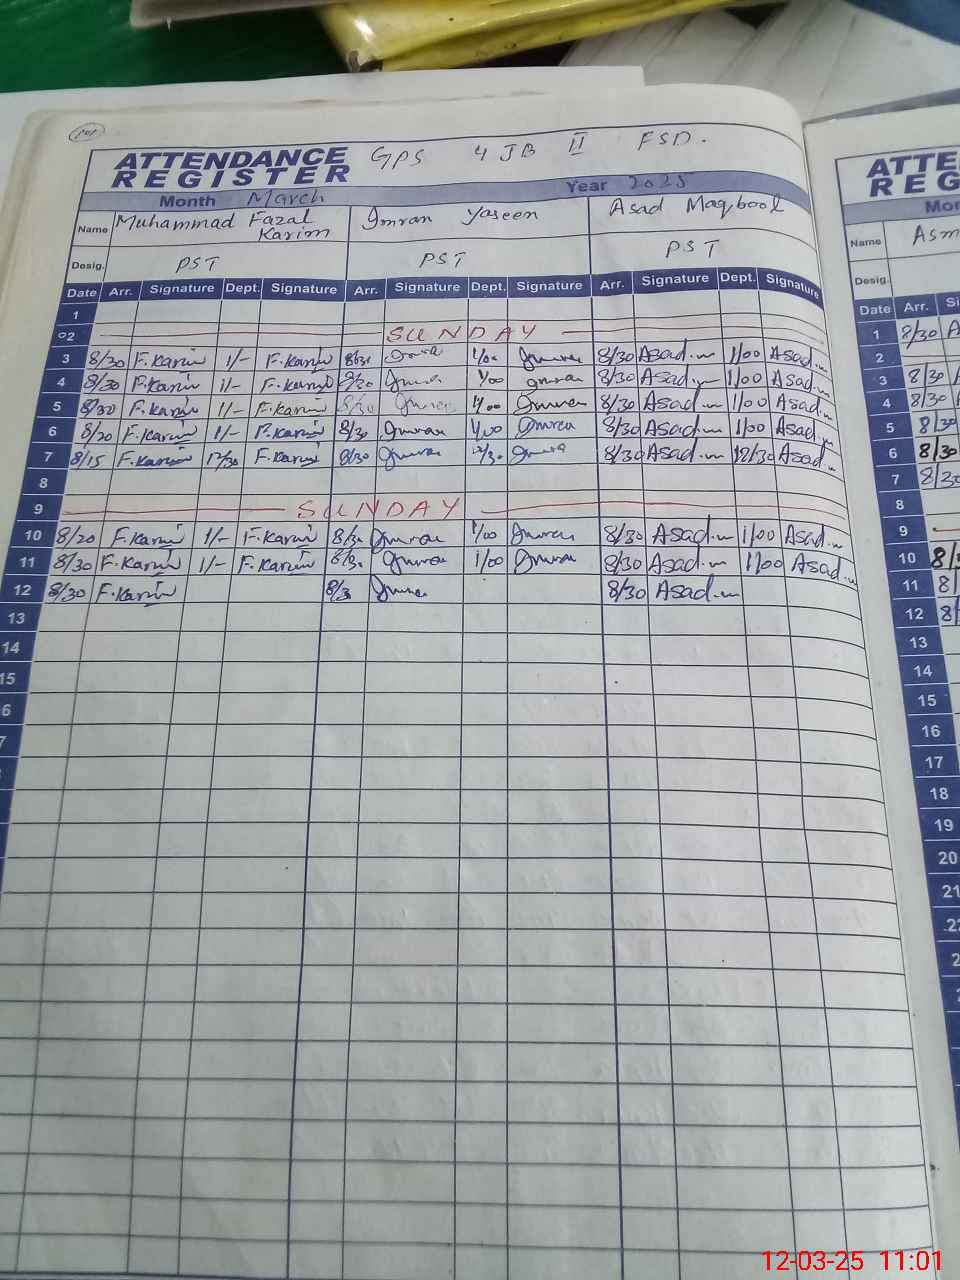 ATTENDANCE REGISTER GPS 4 JB II FSD.
Month March Year 2025
Name Muhammad Fazal Karim Imran Yaseen Asad Maqbool
Desig. PST PST PST
Date Arr. Signature Dept. Signature Arr. Signature Dept. Signature Arr. Signature Dept. Signature
1
2 SUNDAY
3 8/20 F.Karim 1/- F.Karim 8/30 Imran 1/00 Imran 8/30 Asad.m 1/00 Asad.m
4 8/30 F.Karim 1/- F.Karim 8/30 Imran 1/00 Imran 8/30 Asad.m 1/00 Asad.m
5 8/30 F.Karim 1/- F.Karim 8/30 Imran 1/00 Imran 8/30 Asad.m 1/00 Asad.m
6 8/20 F.Karim 1/- F.Karim 8/30 Imran 1/00 Imran 8/30 Asad.m 1/00 Asad.m
7 8/15 F.Karim 12/30 F.Karim 8/30 Imran 12/30 Imran 8/30 Asad.m 12/30 Asad.m
8
9 SUNDAY
10 8/20 F.Karim 1/- F.Karim 8/30 Imran 1/00 Imran 8/30 Asad.m 1/00 Asad.m
11 8/30 F.Karim 1/- F.Karim 8/30 Imran 1/00 Imran 8/30 Asad.m 1/00 Asad.m
12 8/30 F.Karim 8/3 Imran 8/30 Asad.m
13
14
15
6
7
ATTE
REG
Mon
Name Asm
Desig.
Date Arr. Si
1 8/30 A
2
3 8/30 A
4 8/30 A
5 8/30
6 8/30
7 8/30
8
9
10 8/3
11 8/
12 8/
13
14
15
16
17
18
19
20
21
22
2
12-03-25 11:01